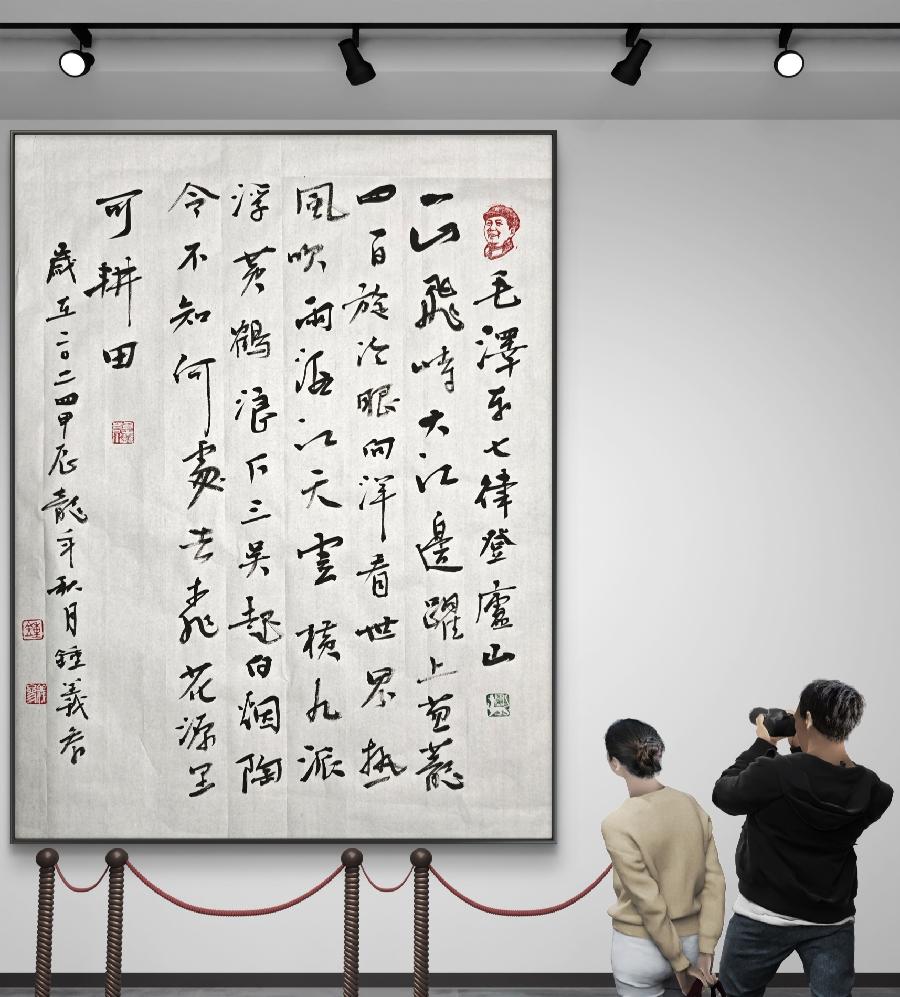 毛澤东七律登廬山
一山飛峙大江邊躍上葱蘢
四百旋冷眼向洋看世界熱
風吹雨洒江天雲橫九派
浮黄鶴浪下三吴起白烟陶
令不知何處去桃花源里
可耕田
歲在二〇二四甲辰龍年秋月鍾義